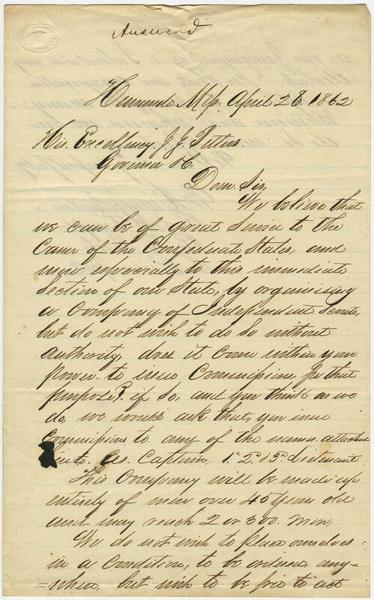 Answerd
Hernando Mip. April 28. 1862
His. Excellincy J. J. Pettus
Govenor &c.
Dear. Sir,
We believe that
we can be of great Service to the
Cause of the Confederate States, and
more especially to this immediate
Section of our State, by organising
a Company of Independent Scouts,
but do not wish to do so without
authority, does it come within your
power to issue Commissions for that
purpose? if so, and you think as we
do, we would ask that, you issue
Commissions to any of the names attached
as Captain, 1st 2d & 3d Lieutenant
This Company will be made up
entirely of men over 45 years old
and may reach 2 or 300. men,
We do not wish to place ourselves
in a condition, to be ordered any-
-where, but wish to be free to act